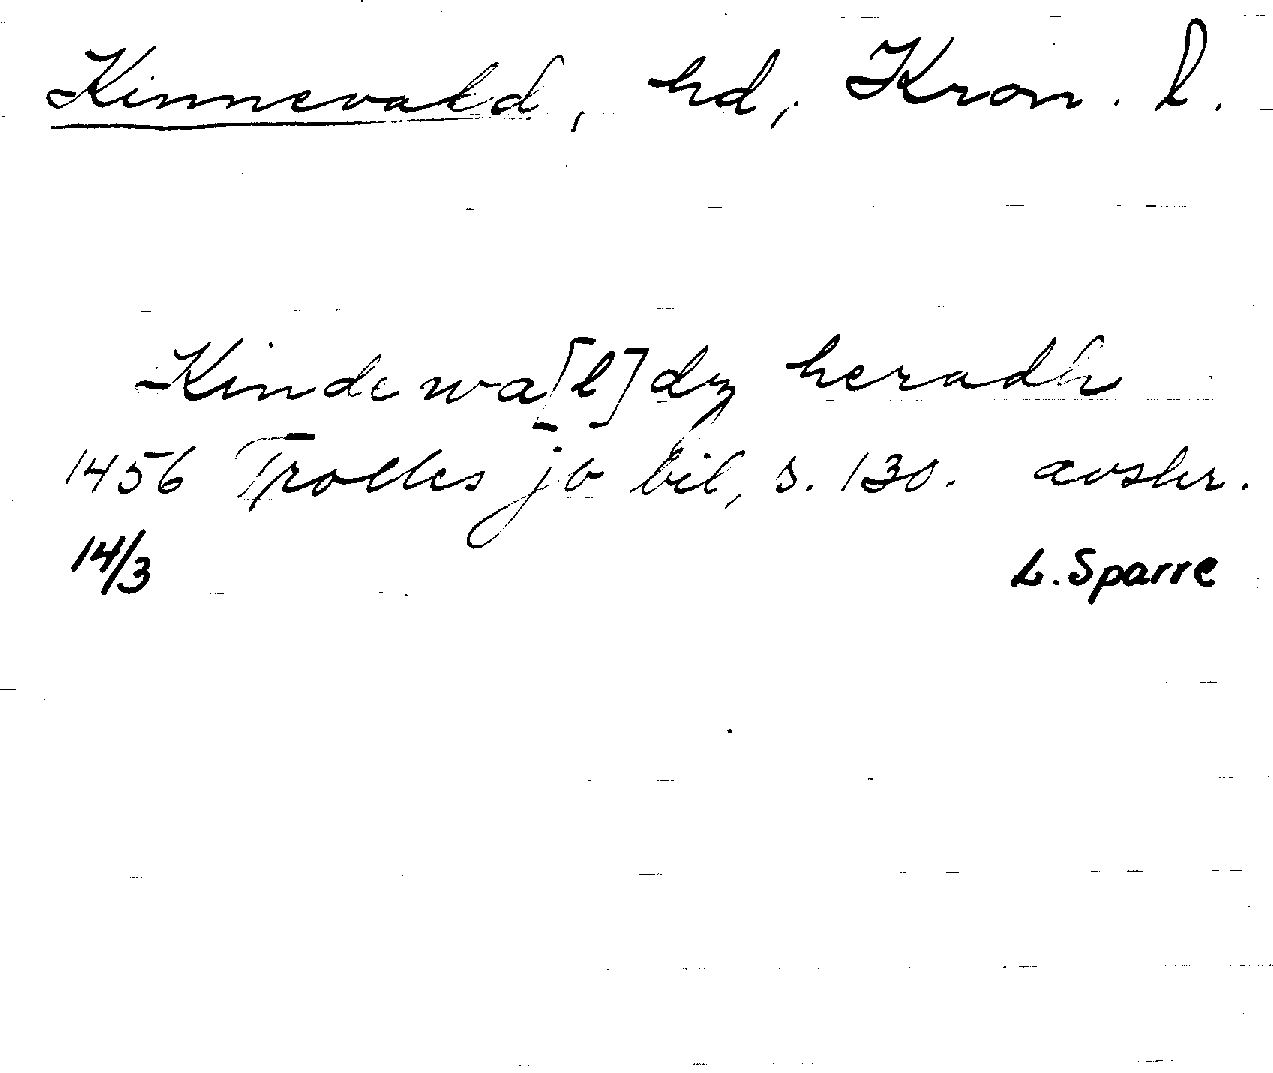 Kinnevald, hd, Kron. l.
Kindewa[l]dz heradh
1456 Trolles jb bil, s. 130. avskr.
14/3 L. Sparre